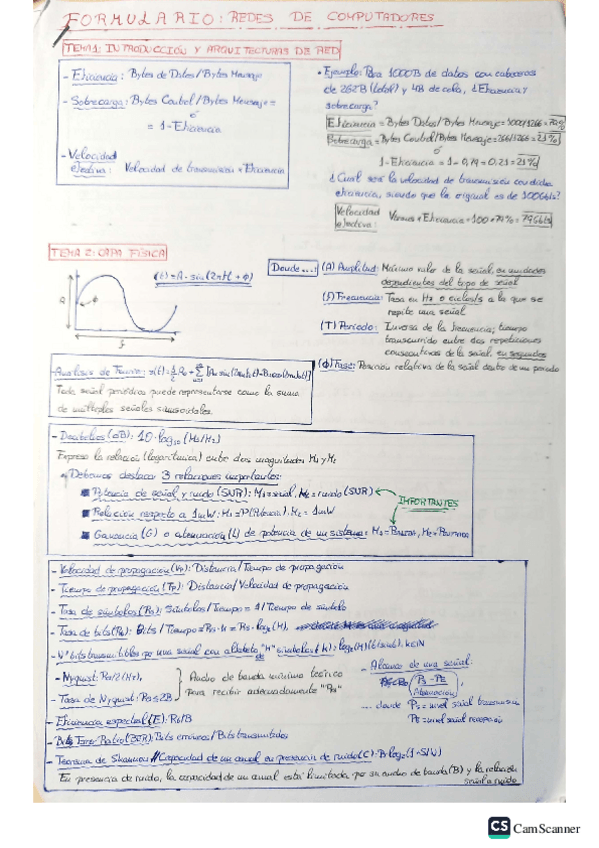 FORMULARIO: REDES DE COMPUTADORES
TEMA 1: INTRODUCCIÓN Y ARQUITECTURAS DE RED
- Eficiencia: Bytes de Datos/Bytes Mensaje
- Sobrecarga: Bytes Control/Bytes Mensaje =
ó
= 1-Eficiencia
- Velocidad
efectiva: Velocidad de transmisión * Eficiencia
• Ejemplo: Para 1000B de datos con cabeceras
de 262B (total) y 4B de cola, ¿Eficiencia y
sobrecarga?
Eficiencia = Bytes Datos/Bytes Mensaje = 1000/1266 = 79%
Sobrecarga = Bytes Control/Bytes Mensaje = 266/1266 = 21%
ó
1-Eficiencia = 1-0,79 = 0,21 = 21%
¿Cuál será la velocidad de transmisión con dicha
eficiencia, siendo que la original es de 100Gb/s?
Velocidad
efectiva:
* Eficiencia = 100 * 79% = 79Gb/s
TEMA 2: CAPA FÍSICA
(t) = A · sin(2πft + φ)
A
φ
Donde...:
(A) Amplitud: Máximo valor de la señal, en unidades
dependientes del tipo de señal
(f) Frecuencia: Tasa en Hz o ciclos/s a la que se
repite una señal
(T) Periodo: Inversa de la frecuencia; tiempo
transcurrido entre dos repeticiones
consecutivas de la señal, en segundos
(φ) Fase: Posición relativa de la señal dentro de un periodo
- Análisis de Fourier:
Toda señal periódica puede representarse como la suma
de múltiples señales sinusoidales.
- Decibelios (dB): 10·log10 (M1/M2)
Expresa la relación (logarítmica) entre dos magnitudes M1 y M2
• Debemos destacar 3 relaciones importantes:
■ Potencia de señal y ruido (SNR): M1=señal, M2=ruido (SNR)
IMPORTANTES
■ Relación respecto a 1mW: M1=P(Potencia), M2=1mW
■ Ganancia (G) o atenuación (L) de potencia de un sistema:
- Velocidad de propagación (Vp): Distancia/Tiempo de propagación
- Tiempo de propagación (Tp): Distancia/Velocidad de propagación
- Tasa de símbolos (Rs): Símbolos/Tiempo = 1/Tiempo de símbolo
- Tasa de bits (Rb): Bits/Tiempo = Rs·k = Rs·log2(M),
- Nº bits transmitibles por una señal con alfabeto de "M" símbolos (k): log2(M) (bits/símb), k∈N
- Nyquist: Rs/2 (Hz),
- Tasa de Nyquist: Rs≤2B
Ancho de banda mínimo teórico
para recibir adecuadamente "Rs"
- Alcance de una señal:
Ps - PE
Atenuación
... donde Ps = nivel señal
PE = nivel señal recepción
- Eficiencia espectral (E): Rb/B
- Bit Error Ratio (BER): Bits erróneos/Bits transmitidos
- Teorema de Shannon // Capacidad de un canal en presencia de ruido (C): B·log2(1+S/N)
En presencia de ruido, la capacidad de un canal está limitada por su ancho de banda (B) y la relación
señal a ruido
CS CamScanner